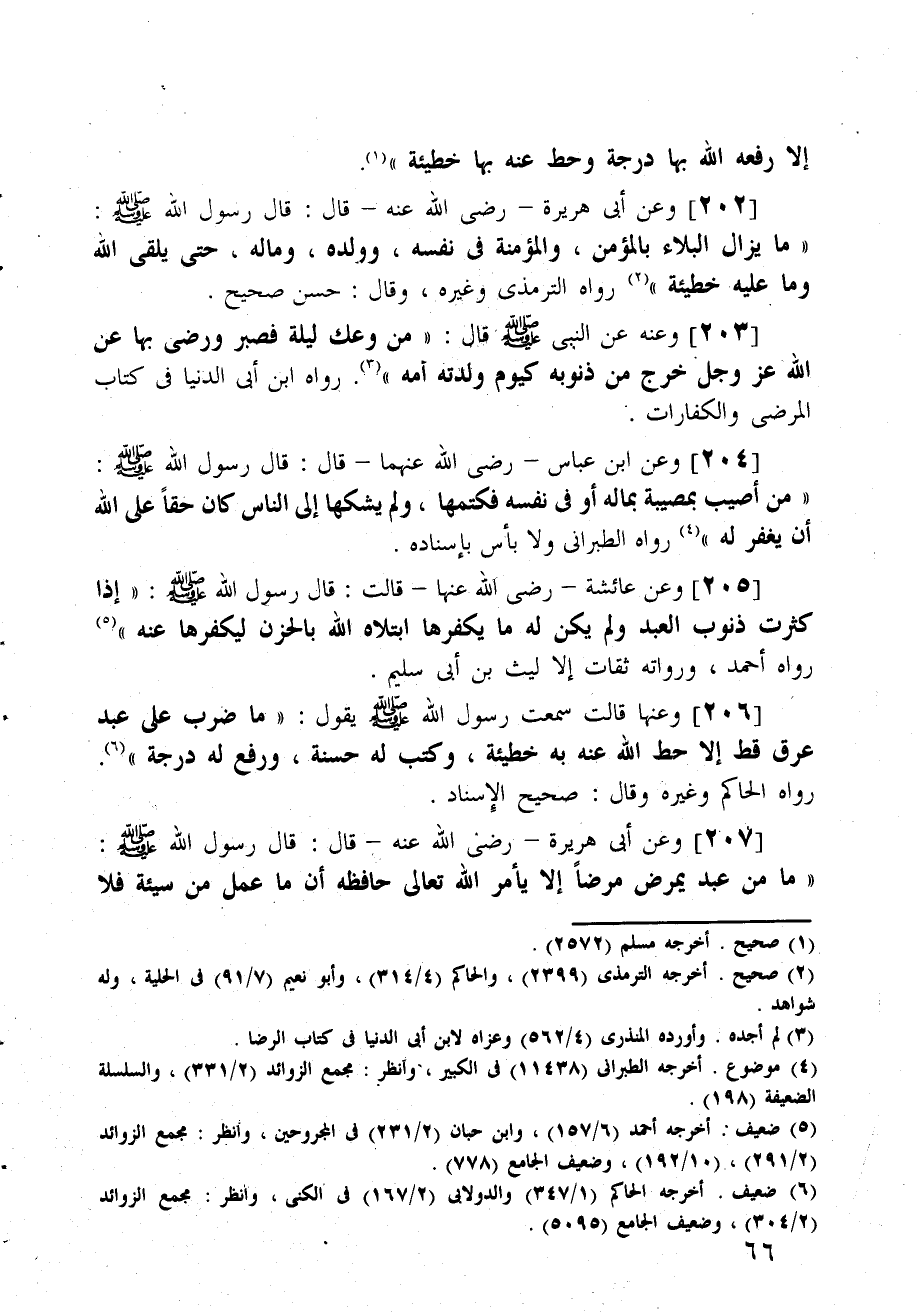 إلا رفعه الله بها درجة وحط عنه بها خطيئة »(١).
[٢٠٢] وعن أبى هريرة – رضى الله عنه – قال : قال رسول الله ﷺ :
« ما يزال البلاء بالمؤمن ، والمؤمنة فى نفسه ، وولده ، وماله ، حتى يلقى الله
وما عليه خطيئة »(٢) رواه الترمذى وغيره ، وقال : حسن صحيح .
[٢٠٣] وعنه عن النبى ﷺ قال : « من وعك ليلة فصبر ورضى بها عن
الله عز وجل خرج من ذنوبه كيوم ولدته أمه »(٣). رواه ابن أبى الدنيا فى كتاب
المرضى والكفارات .
[٢٠٤] وعن ابن عباس – رضى الله عنهما – قال : قال رسول الله ﷺ :
« من أصيب بمصيبة بماله أو فى نفسه فكتمها ، ولم يشكها إلى الناس كان حقاً على الله
أن يغفر له »(٤) رواه الطبرانى ولا بأس بإسناده .
[٢٠٥] وعن عائشة – رضى الله عنها – قالت : قال رسول الله ﷺ : « إذا
كثرت ذنوب العبد ولم يكن له ما يكفرها ابتلاه الله بالحزن ليكفرها عنه »(٥)
رواه أحمد ، ورواته ثقات إلا ليث بن أبى سليم .
[٢٠٦] وعنها قالت سمعت رسول الله ﷺ يقول : « ما ضرب على عبد
عرق قط إلا حط الله عنه به خطيئة ، وكتب له حسنة ، ورفع له درجة »(٦).
رواه الحاكم وغيره وقال : صحيح الإسناد .
[٢٠٧] وعن أبى هريرة – رضى الله عنه – قال : قال رسول الله ﷺ :
« ما من عبد يمرض مرضاً إلا يأمر الله تعالى حافظه أن ما عمل من سيئة فلا
(١) صحيح . أخرجه مسلم (٢٥٧٢) .
(٢) صحيح . أخرجه الترمذى (٢٣٩٩) ، والحاكم (٣١٤/٤) ، وأبو نعيم (٩١/٧) فى الحلية ، وله
شواهد .
(٣) لم أجده . وأورده المنذرى (٥٦٢/٤) وعزاه لابن أبى الدنيا فى كتاب الرضا .
(٤) موضوع . أخرجه الطبرانى (١١٤٣٨) فى الكبير ، وأنظر : مجمع الزوائد (٣٣١/٢) ، والسلسلة
الضعيفة (١٩٨) .
(٥) ضعيف . أخرجه أحمد (١٥٧/٦) ، وابن حبان (٢٣١/٢) فى المجروحين ، وأنظر : مجمع الزوائد
(٢٩١/٢) ، (١٩٢/١٠) ، وضعيف الجامع (٧٧٨) .
(٦) ضعيف . أخرجه الحاكم (٣٤٧/١) والدولابى (١٦٧/٢) فى الكنى ، وأنظر : مجمع الزوائد
(٣٠٤/٢) ، وضعيف الجامع (٥٠٩٥) .
٦٦